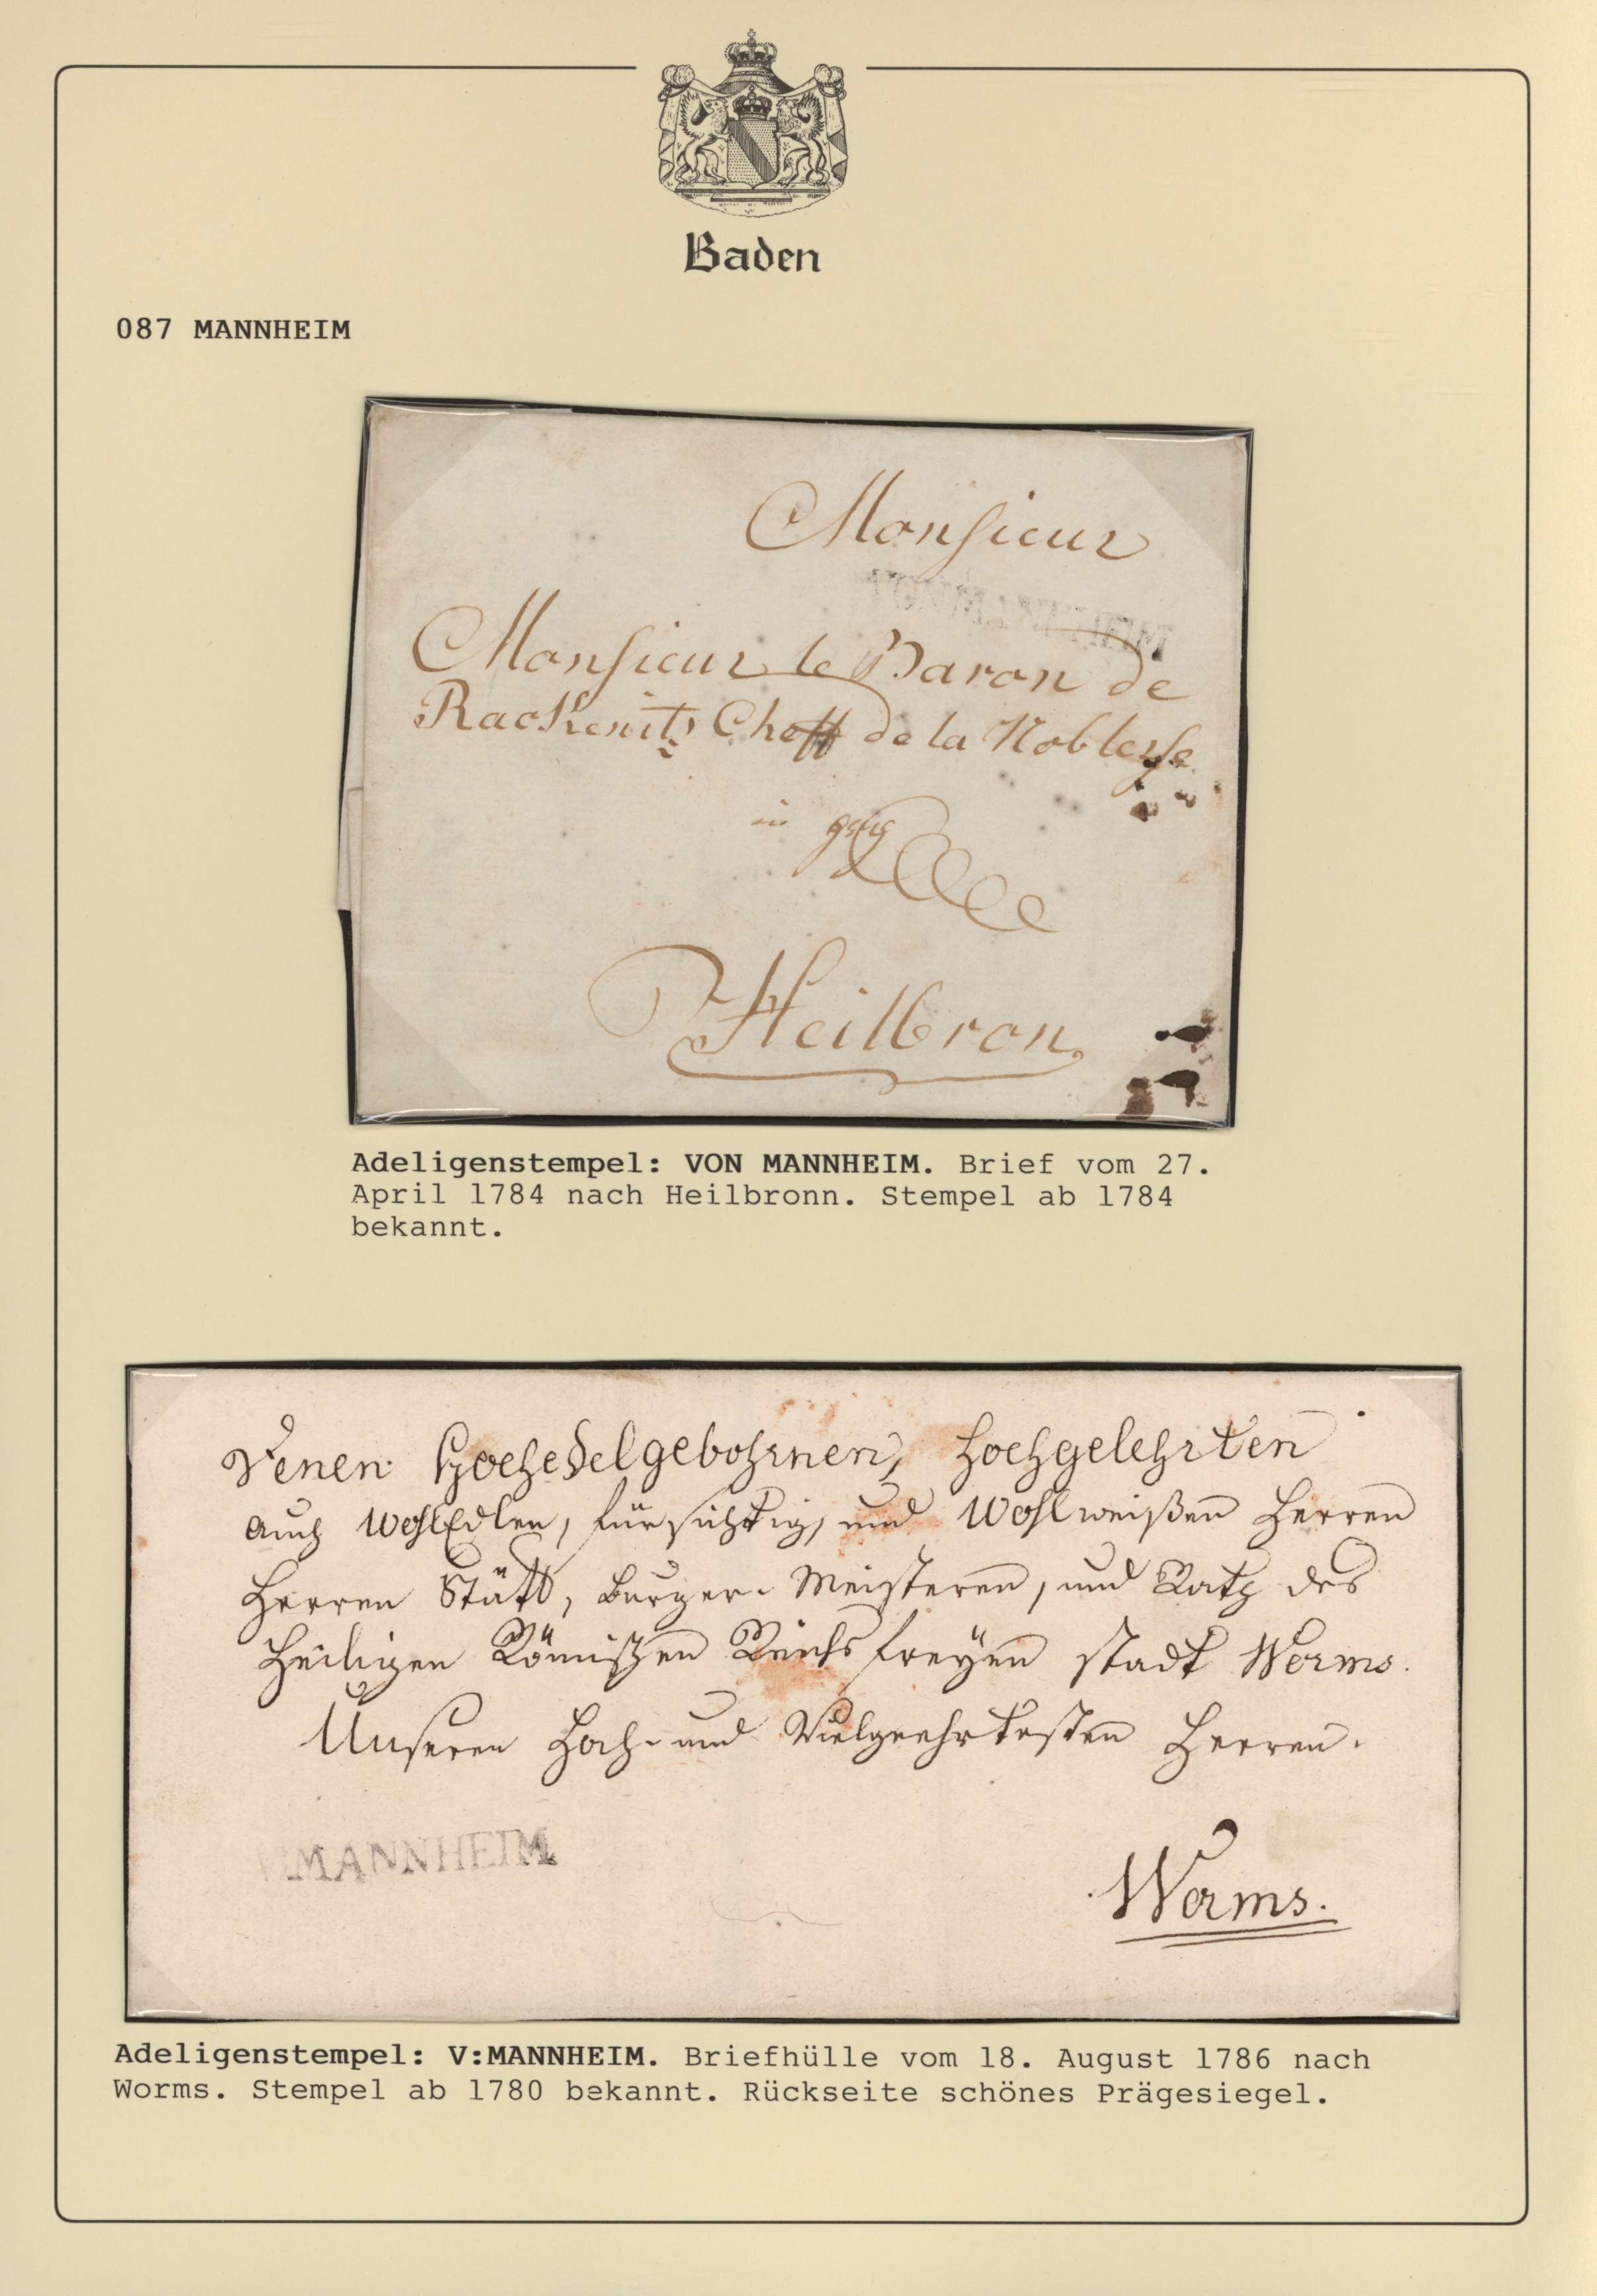 Baden
087 MANNHEIM
Monsieur
VON MANNHEIM
Monsieur le Baron de
Rackenitz Cheff de la Noblesse
in
Heilbron
Adeligenstempel: VON MANNHEIM. Brief vom 27.
April 1784 nach Heilbronn. Stempel ab 1784
bekannt.
Denen HochEdelgebohrnen, Hochgelehrten
auch WohlEdlen, fürsichtig, und Wohlweißen Herren
Herren Stätt, Burger-Meisteren, und Rath des
Heiligen Römischen Reichs freyen Stadt Worms.
Unseren Hoch- und Vielgeehrtesten Herren.
V:MANNHEIM
Worms.
Adeligenstempel: V:MANNHEIM. Briefhülle vom 18. August 1786 nach
Worms. Stempel ab 1780 bekannt. Rückseite schönes Prägesiegel.